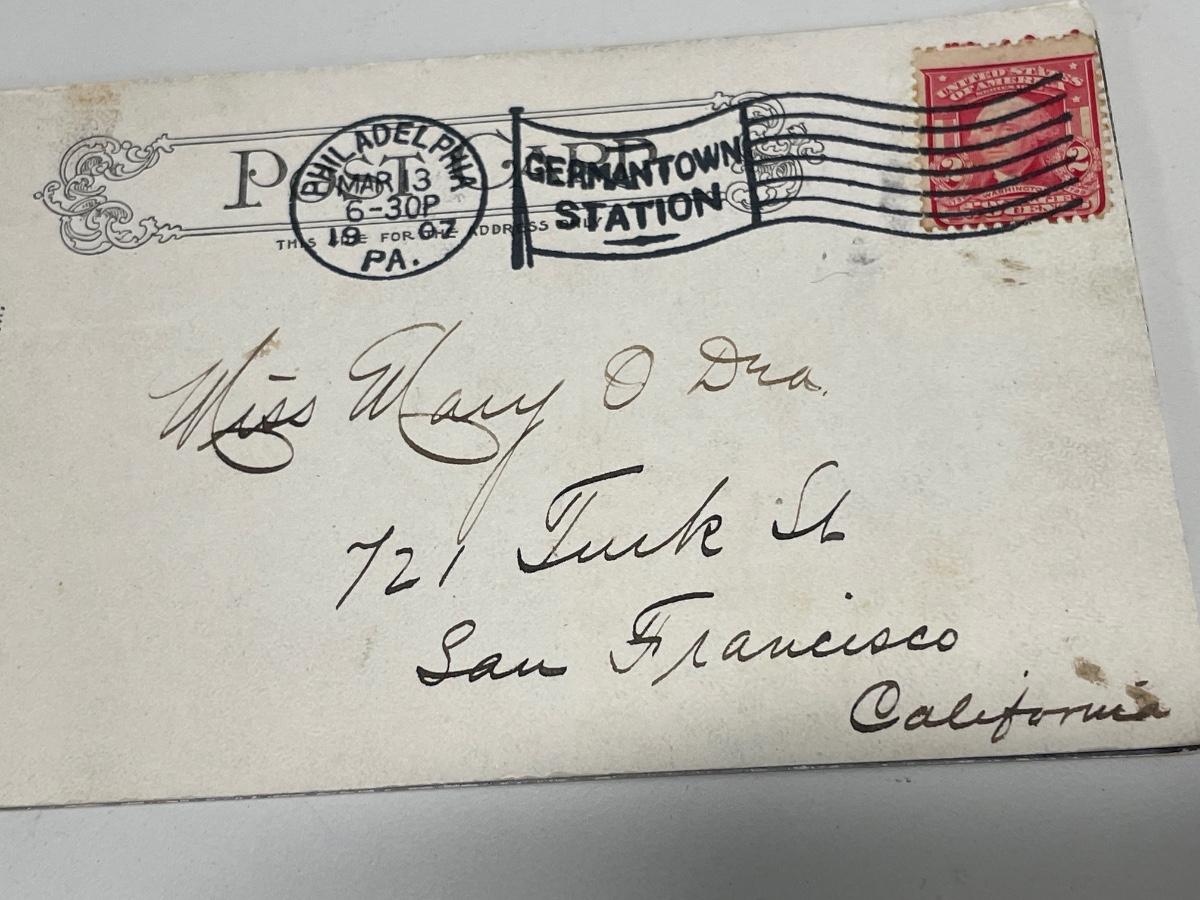 POST CARD
THIS SIDE FOR THE ADDRESS
PHILADELPHIA
MAR 13
6-30P
1907
PA.
GERMANTOWN
STATION
UNITED STATES
OF AMERICA
2 2
WASHINGTON
Miss Mary O Dra.
721 Turk St
San Francisco
California